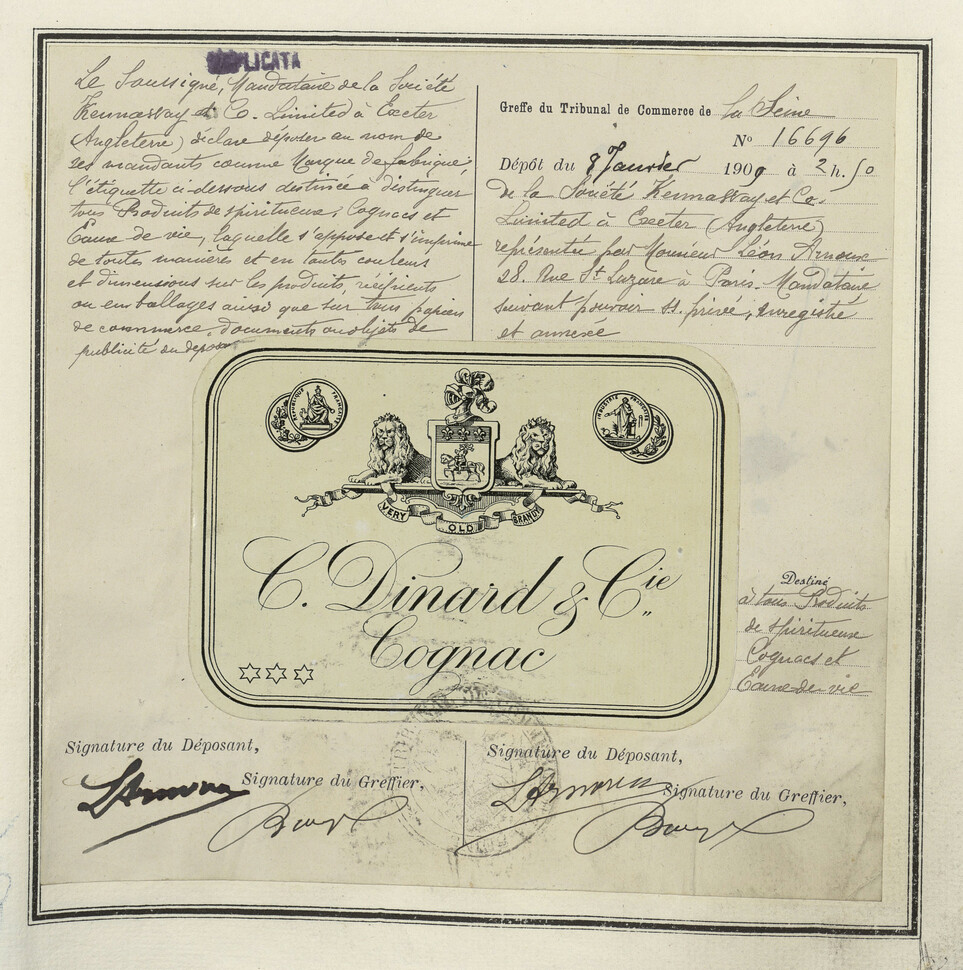 DUPLICATA
Le Soussigné, Mandataire de la Société
Kennassay et Co. Limited à Exeter
(Angleterre) déclare déposer au nom de
ses mandants comme Marque de fabrique
l'étiquette ci-dessous destinée à distinguer
tous Produits de spiritueux, Cognacs et
Eaux de vie, laquelle s'appose et s'imprime
de toutes manières et en toutes couleurs
et dimensions sur les produits, récipients
ou emballages ainsi que sur tous papiers
de commerce, documents ou objets de
publicité du
Greffe du Tribunal de Commerce de la Seine
No 16696
Dépôt du 8 Janvier 1909 à 2h.50
de la Société Kennassay et Co.
Limited à Exeter (Angleterre)
représentée par Monsieur Léon Arnoux
28. Rue St Lazare à Paris. Mandataire
suivant pouvoir ss. privé, enregistré
et annexé
RÉPUBLIQUE FRANÇAISE
VERY OLD BRANDY
C. Dinard & Cie
Cognac
Destiné
à tous Produits
de spiritueux
Cognacs et
Eaux de vie
Signature du Déposant,
Signature du Greffier,
Signature du Déposant,
Signature du Greffier,